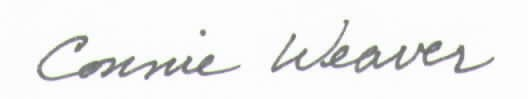 Connie Weaver